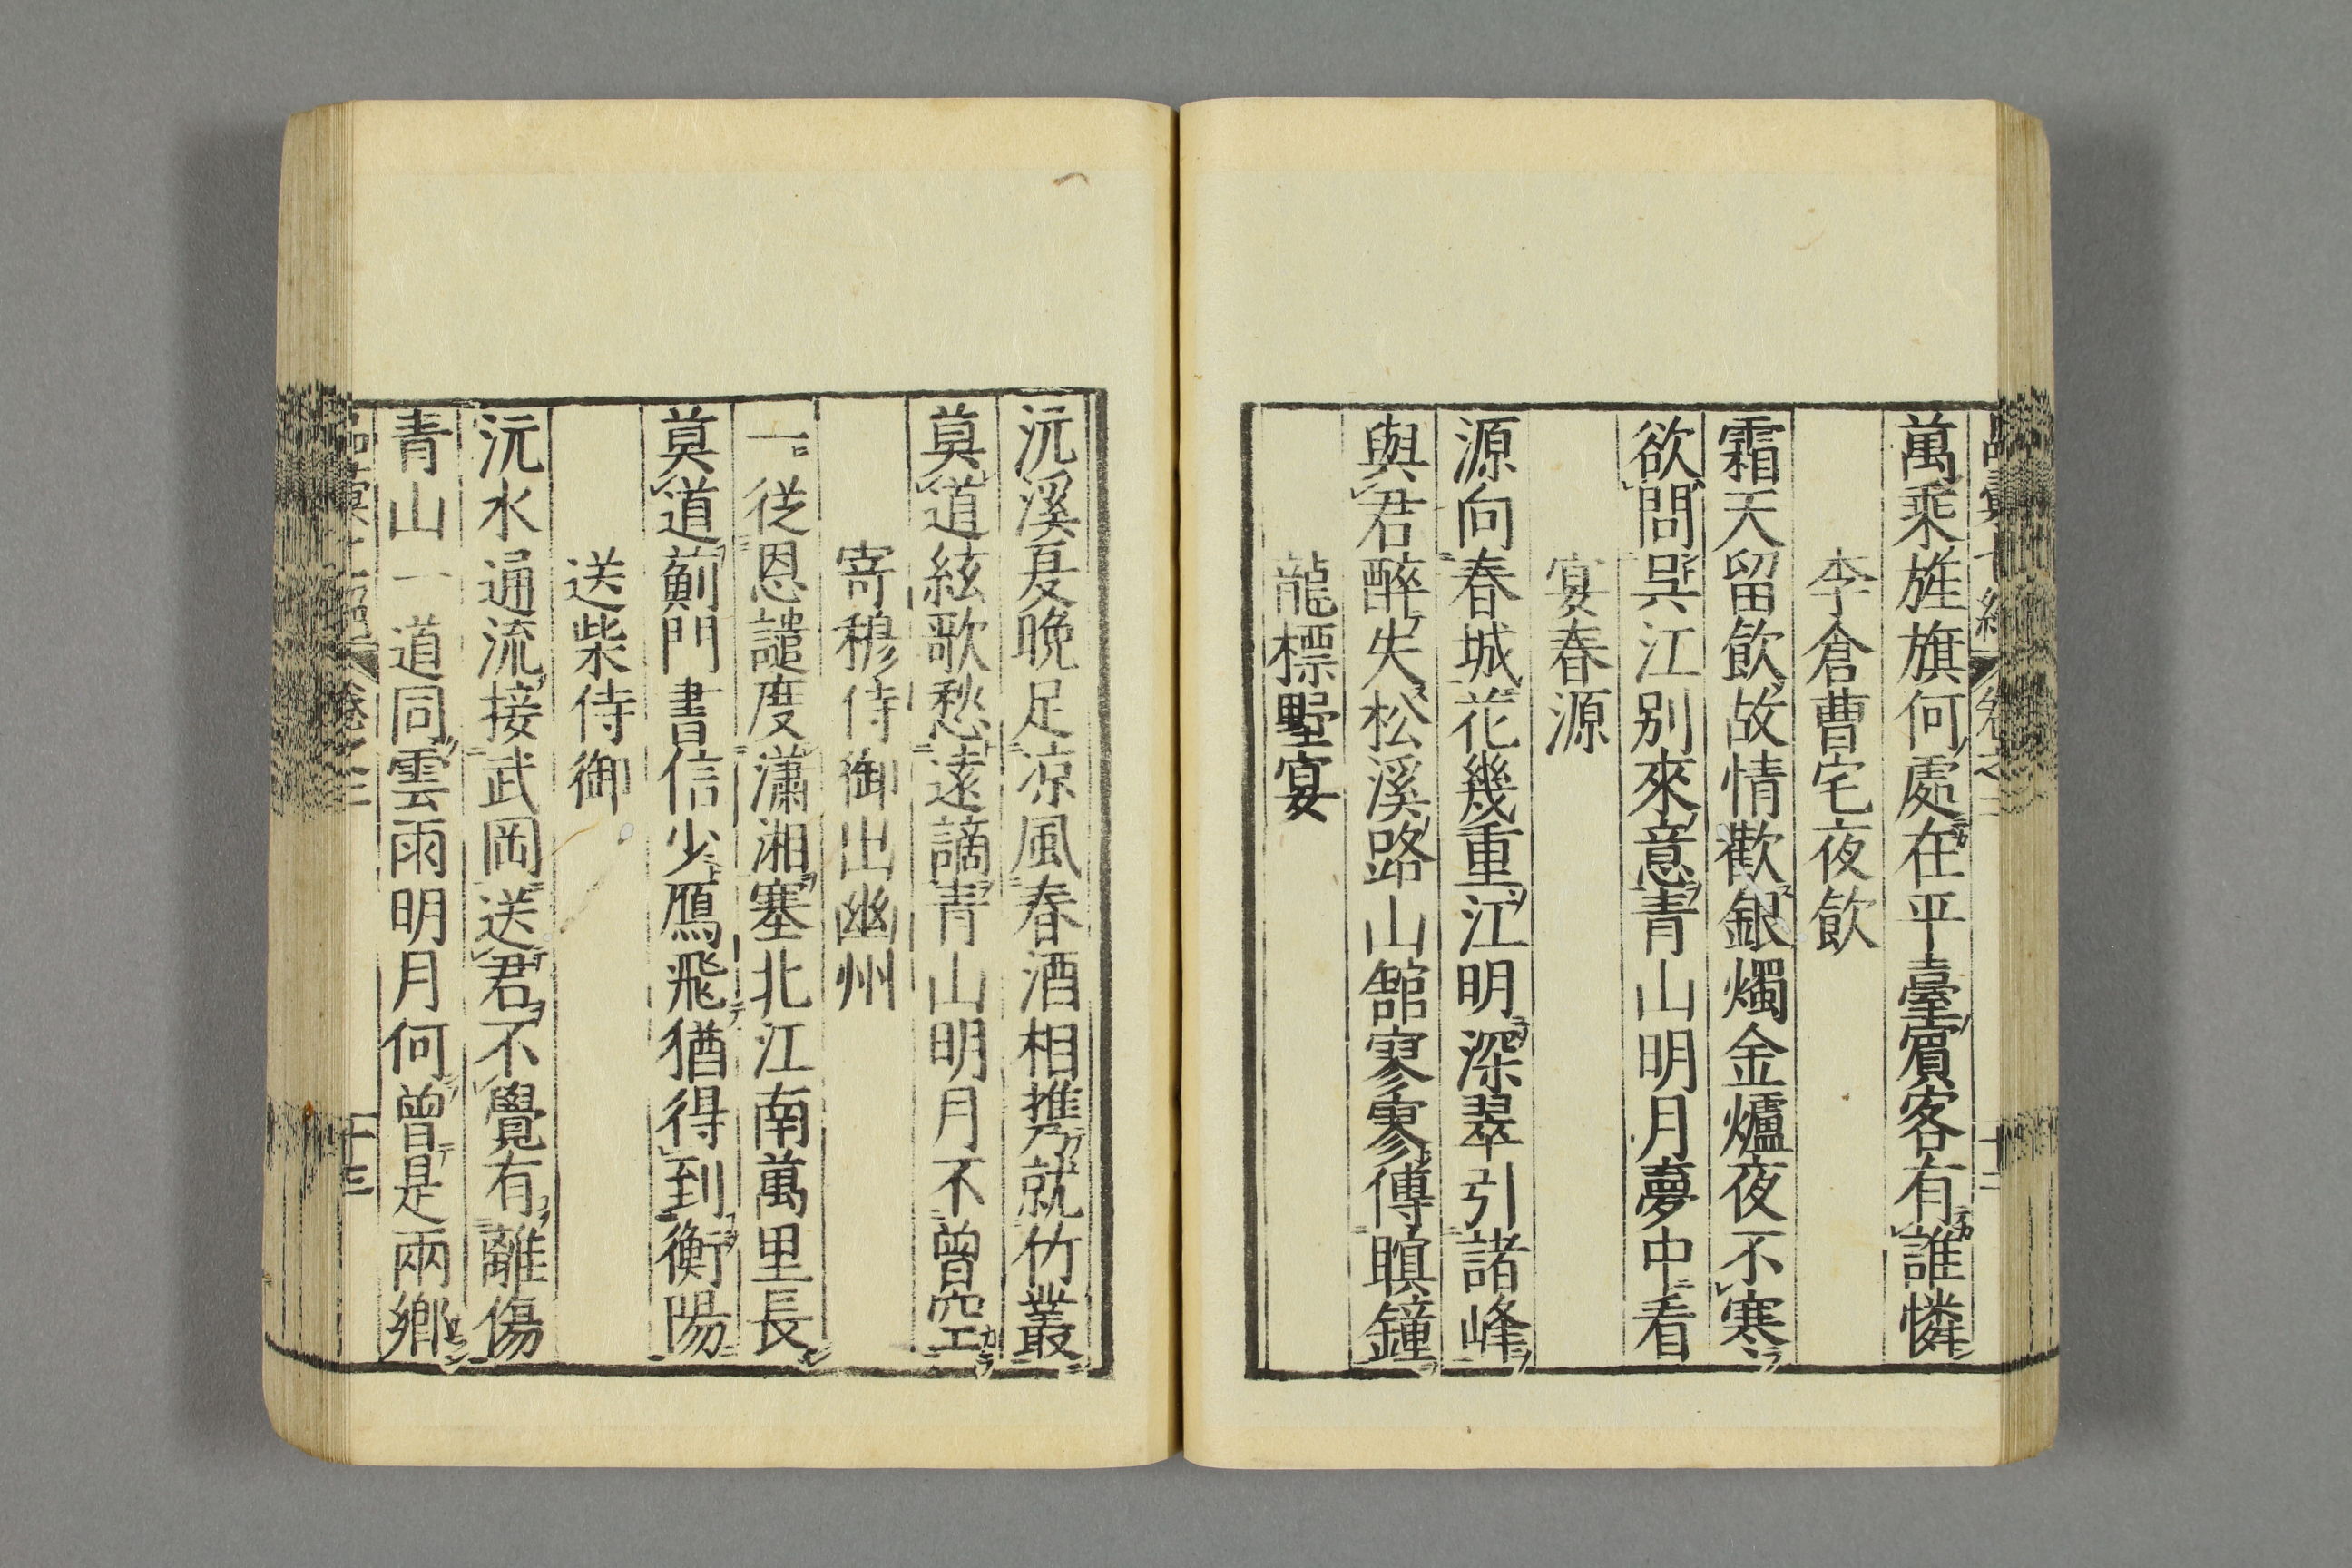 萬乘旌旗何處在平臺賓客有誰憐
李倉曹宅夜飲
霜天留飲故情歡銀燭金爐夜不寒
欲問吳江別來意青山明月夢中看
宴春源
源向春城花幾重江明深翠引諸峰
與君醉失松溪路山館寥寥傳暝鐘
龍標野宴
沅溪夏晚足凉風春酒相携就竹叢
莫道絃歌愁遠謫青山明月不曾空
寄穆侍御出幽州
一從恩譴度瀟湘塞北江南萬里長
莫道薊門書信少鴈飛猶得到衡陽
送柴侍御
沅水通流接武岡送君不覺有離傷
青山一道同雲雨明月何曾是兩鄉
十三